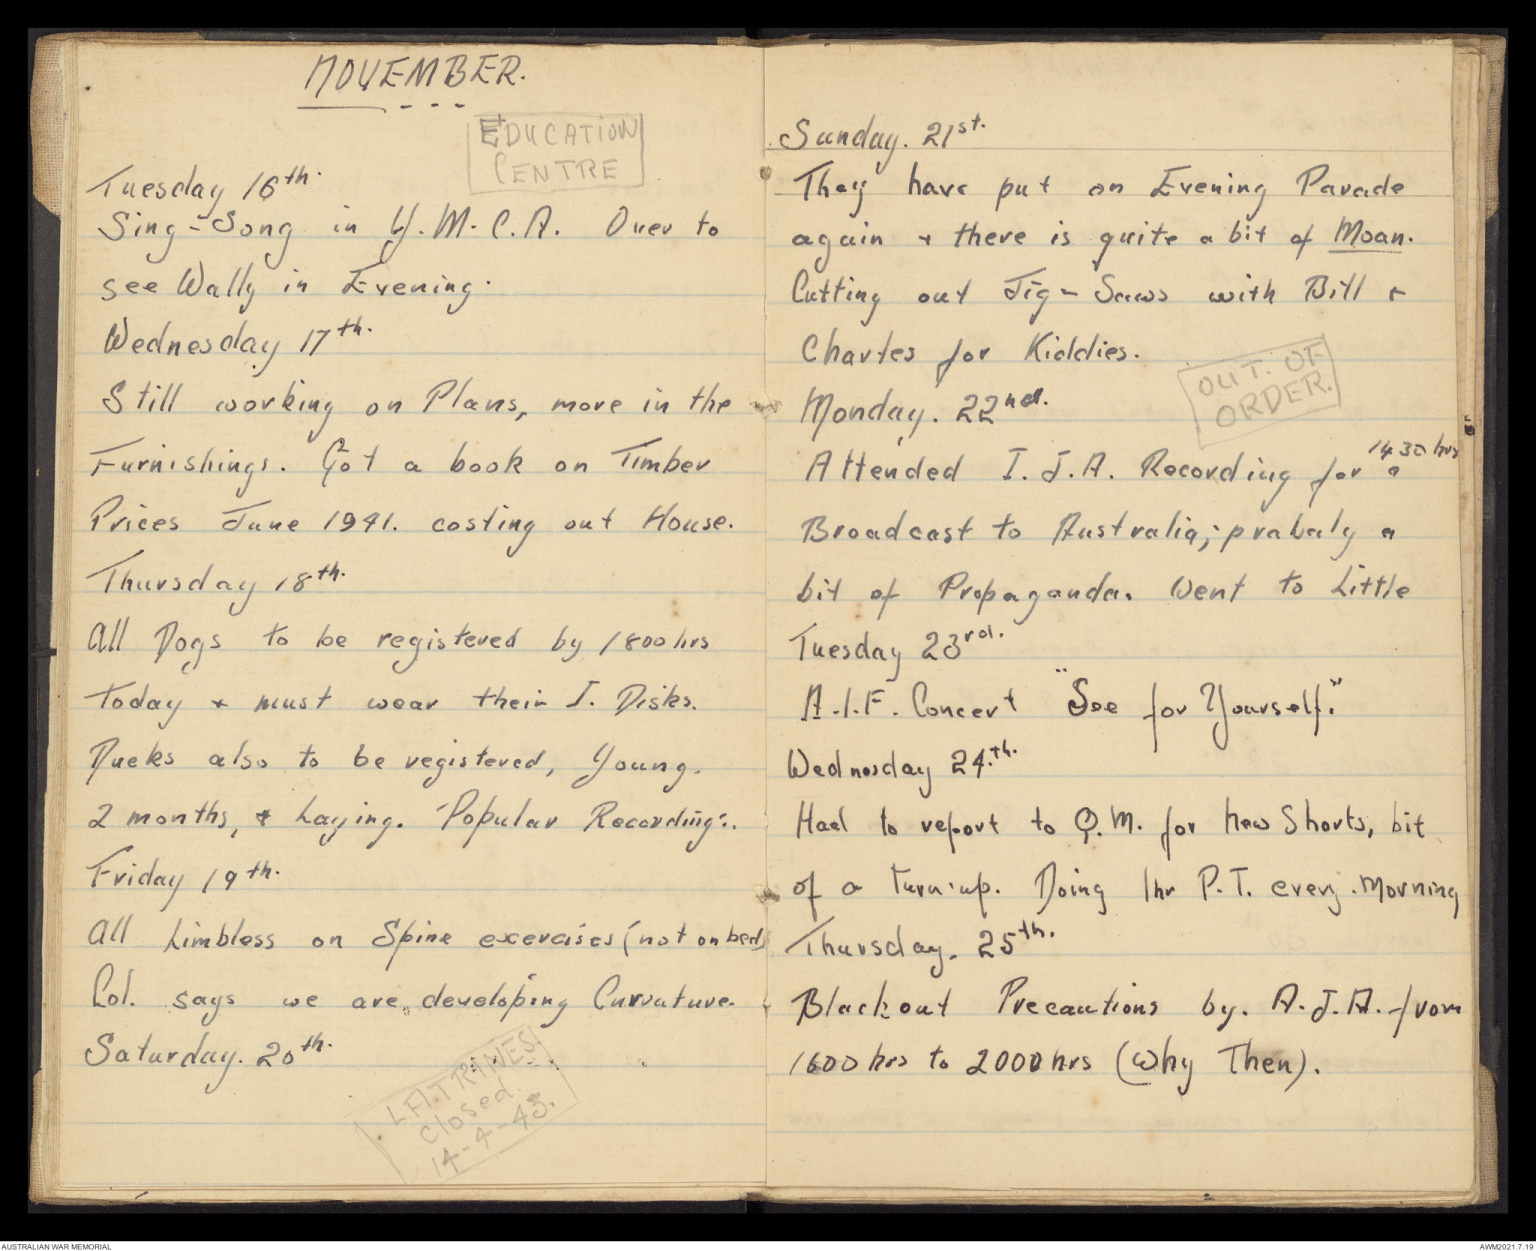 NOVEMBER.
EDUCATION
CENTRE
Tuesday 16th.
Sing-Song in Y.M.C.A. Over to
see Wally in Evening.
Wednesday 17th.
Still working on Plans, more in the
Furnishings. Got a book on Timber
Prices June 1941. costing out House.
Thursday 18th.
All Dogs to be registered by 1800 hrs
Today + must wear their I. Disks.
Ducks also to be registered, Young.
2 months, + Laying. Popular Recordings.
Friday 19th.
All Limbless on Spine exercises (not on bed)
Col. says we are developing Curvature.
Saturday. 20th.
LATTRINES
Closed.
14-4-43.
Sunday. 21st.
They have put on Evening Parade
again + there is quite a bit of Moan.
Cutting out Jig-Saws with Bill +
Charles for Kiddies.
OUT. OF
ORDER.
Monday. 22nd.
1430 hrs
Attended I.J.A. Recording for a
Broadcast to Australia; prabaly a
bit of Propaganda. Went to Little
Tuesday 23rd.
A.I.F. Concert "See for Yourself."
Wednesday 24th.
Had to report to Q.M. for new Shorts, bit
of a turn-up. Doing 1hr P.T. every. Morning
Thursday. 25th.
Blackout Precautions by. A.J.A. from
1600 hrs to 2000 hrs (Why Then).
AUSTRALIAN WAR MEMORIAL
AWM2021.7.19